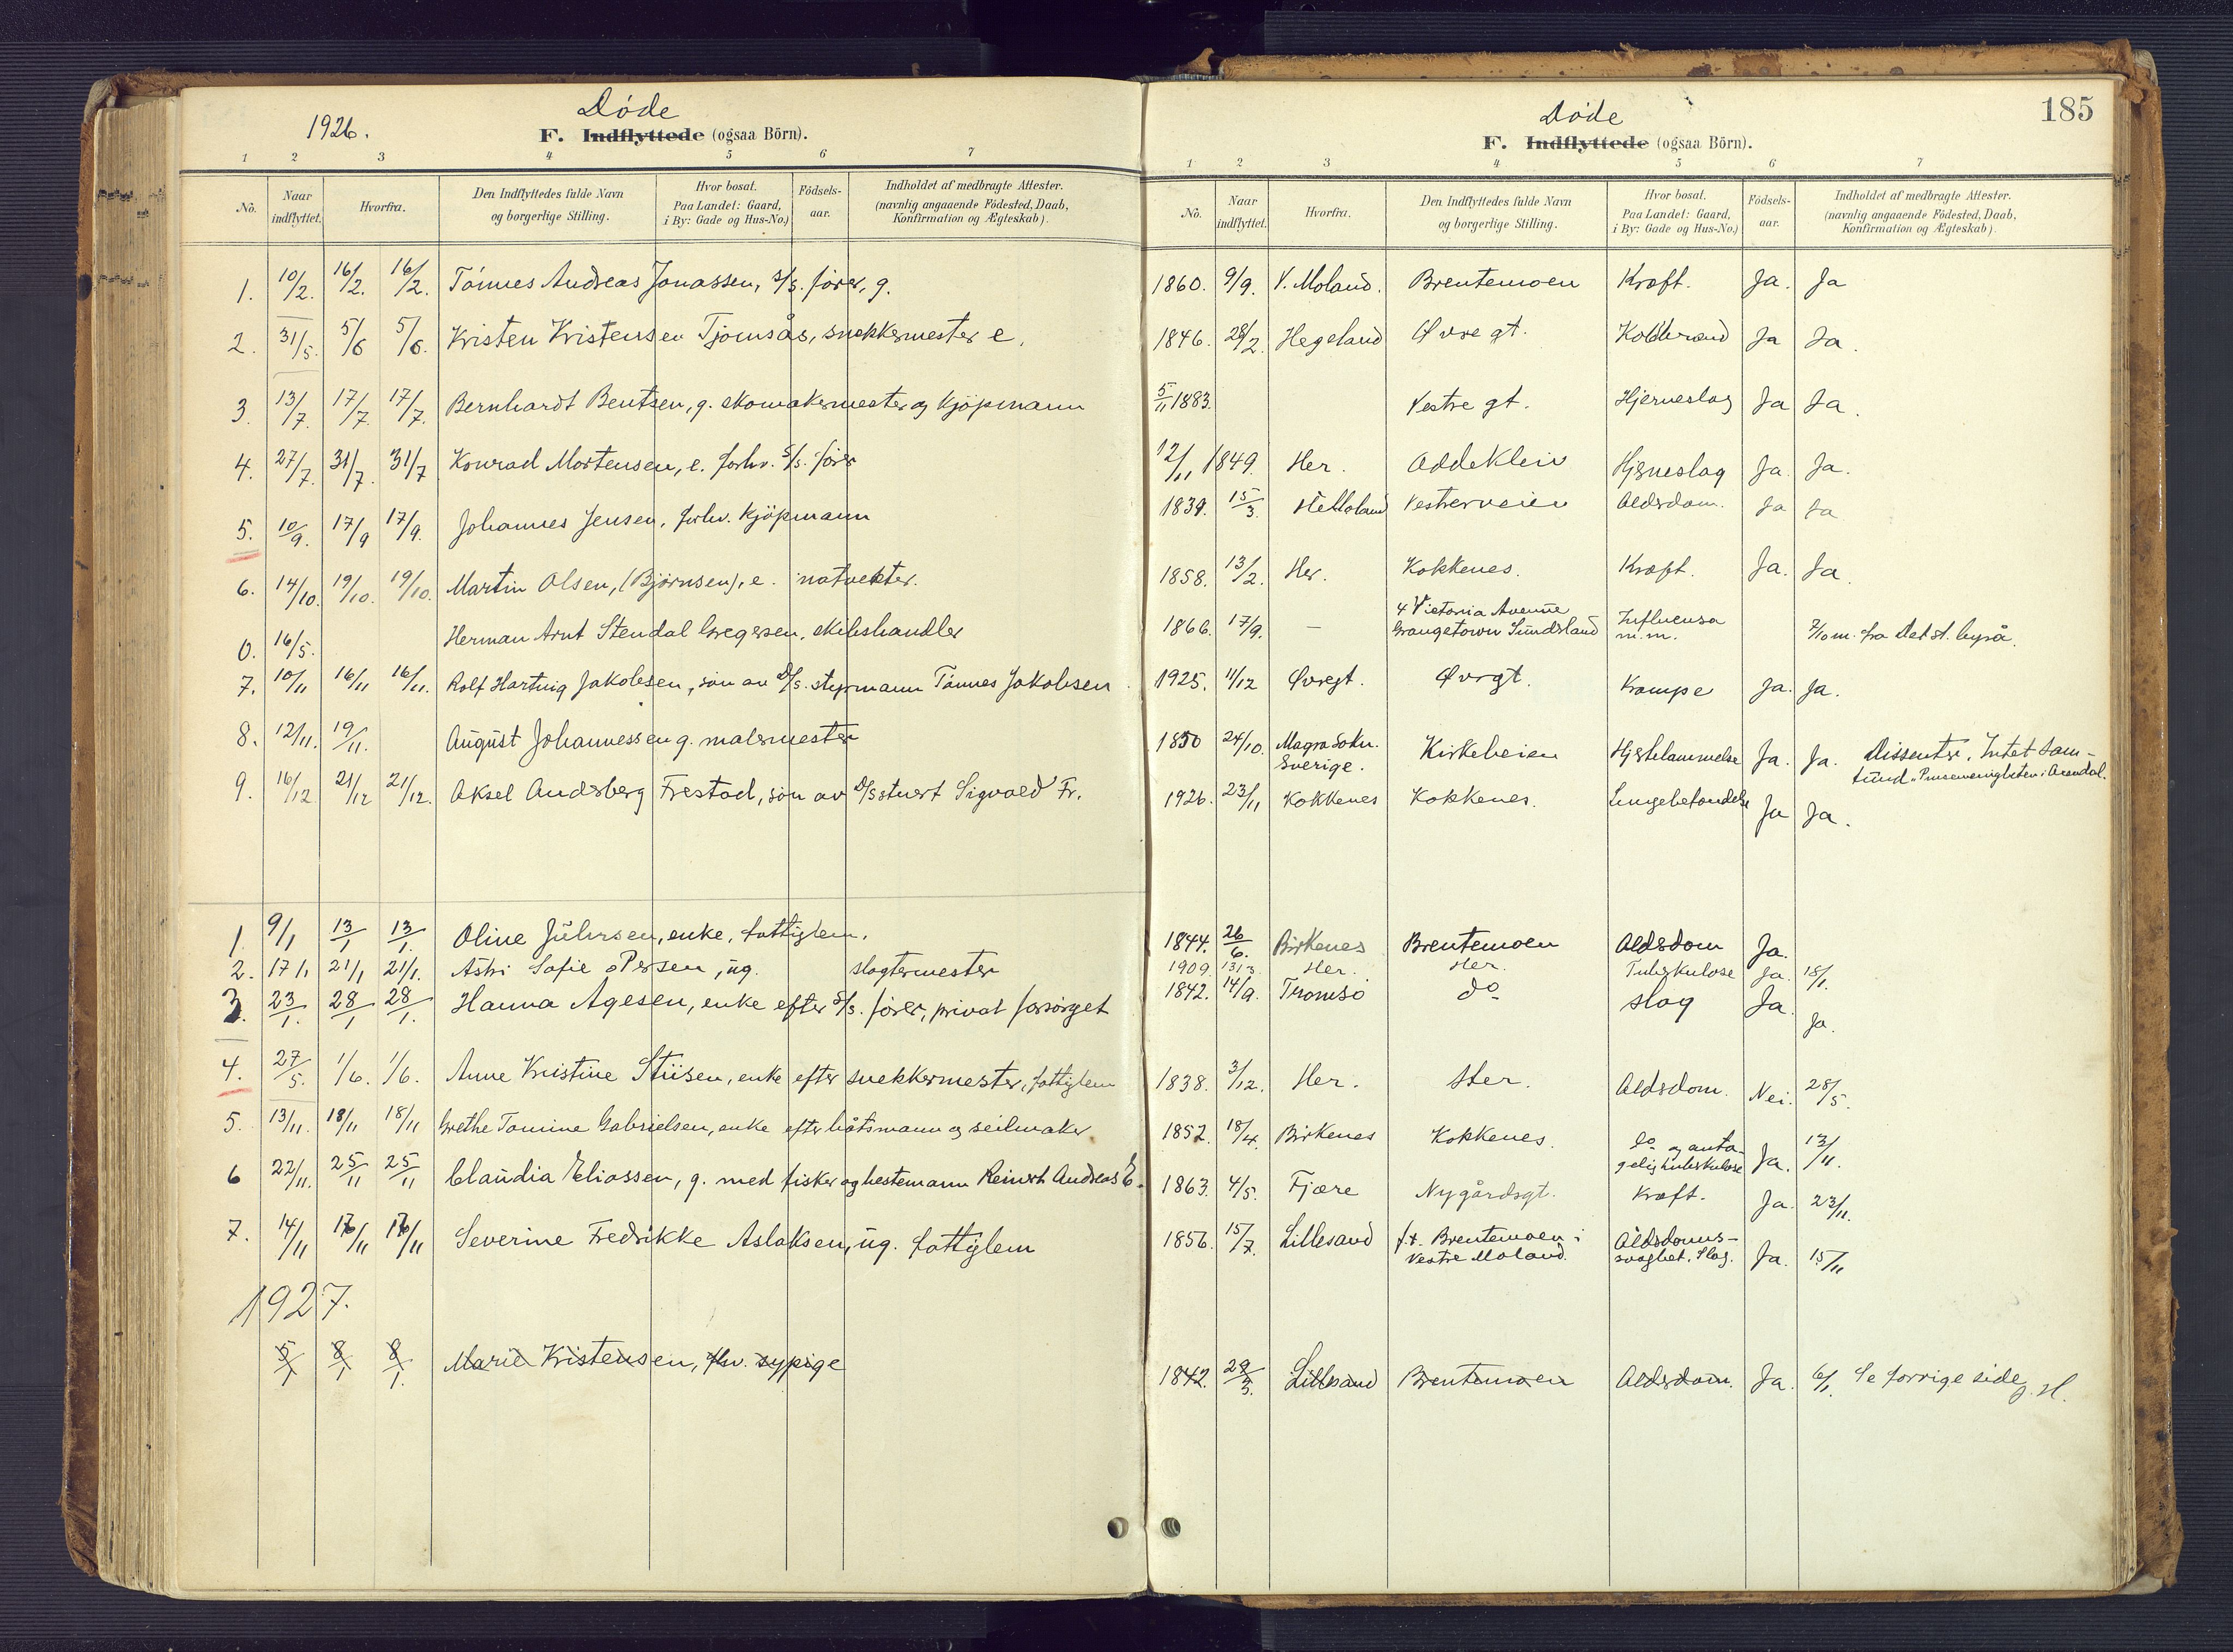 Døde
1926.
F. Indflyttede (ogsaa Börn).
1 2 3 4 5 6 7
No. Naar indflyttet. Hvorfra. Den Indflyttedes fulde Navn og borgerlige Stilling. Hvor bosat. Paa Landet: Gaard, i By: Gade og Hus-No.) Födsels-aar. Indholdet af medbragte Attester. (navnlig angaaende Födested, Daab, Konfirmation og Ægteskab).
1. 10/2. 16/2. 16/2. Tønnes Andreas Jonassen, s/s. fører, g.
2. 31/5. 5/6 5/6. Kristen Kristensen Tjomsås, snekkermester e.
3. 13/7. 17/7. 17/7. Bernhardt Bentsen, g. skomakermester og kjøpmann
4. 27/7. 31/7. 31/7 Konrad Mortensen, e. forhv. s/s. fører
5. 10/9. 17/9 17/9. Johannes Jensen, forhv. kjøpmann
6. 14/10. 19/10. 19/10. Martin Olsen, (Bjørnsen), e. natvekter.
0. 16/5. Herman Arnt Stendal Gregersen, skibshandler
7. 10/11 16/11 16/11. Rolf Hartvig Jakobsen, søn av D/s. styrmann Tønnes Jakobsen
8. 12/11. 19/11. August Johannessen g. malermester
9. 16/12 21/12 21/12. Aksel Andersberg Frestad, søn av D/s stuert Sigvald Fr.
1. 9/1 13/1 13/1. Oline Juhrsen, enke, fattiglem.
2. 17/1 21/1 21/1. Astri Sofie Persen, ug. slagtermester
3. 23/1. 28/1 28/1. Hanna Agesen, enke efter s/s. fører, privat forsørget
4. 27/5. 1/6. 1/6. Anne Kristine Stiisen, enke efter snekkermester, fattiglem
5. 13/11. 18/11 18/11 Grethe Tomine Gabrielsen, enke efter båtsmann og seilmaker
6 22/11. 25/11 25/11 Claudia Eliassen, g. med fisker og hestemann Reinert Andreas E.
7. 14/11 17/11 17/11 Severine Fredrikke Aslaksen, ug. fattiglem
1927.
5/1 8/1 8/1. Marie Kristensen, fhv. sypige
185
Døde
F. Indflyttede (ogsaa Börn).
1 2 3 4 5 6 7
No. Naar indflyttet. Hvorfra. Den Indflyttedes fulde Navn og borgerlige Stilling. Hvor bosat. Paa Landet: Gaard, i By: Gade og Hus-No.) Födsels-aar. Indholdet af medbragte Attester. (navnlig angaaende Födested, Daab, Konfirmation og Ægteskab).
1860. 9/9. V. Moland. Brentemoen Kræft. Ja. Ja
1846. 28/2. Hegeland Øvre gt. Koldbrand Ja Ja.
5/11 1883. Vestre gt. Hjerneslag Ja Ja.
12/11 1849. Her. Oddekleiv Hjerneslag Ja. Ja.
1839. 15/3. Vesterveien Aldsdom. Ja Ja
1858. 13/2. Her. Kokkenes. Kræft. Ja. Ja.
1866. 17/9. — 4 Victoria Avenue Grangetown Sundsland Influensa m.m. 7/10 m. fra Det st. byrå.
1925. 11/12 Øvregt. Øvrgt. Krampe Ja. Ja.
1850 24/10. Magra Sokn. Sverige. Kirkeheien Hjertelammelse Ja. Ja. Dissenter. Intet samfund. Pinsemenigheten i Arendal.
1926. 23/11 Kokkenes Kokkenes. Lungebetændelse Ja Ja.
1844. 26/6. Birkenes Brentemoen Aldsdom Ja.
1909. 13/3. Her. Her. Tuberkulose Ja. 18/1.
1842. 14/9. Tromsø do slag Ja. Ja.
1838. 3/12. Her. Her. Aldsdom. Nei. 28/5.
1852. 18/4. Birkenes Kokkenes. do og antagelig tuberkulose Ja. 13/11.
1863. 4/5. Fjære Nygårdsgt. Kræft. Ja. 23/11.
1856. 15/7. Lillesand f.t. Brentemoen i Vestre Moland. Aldsdoms-svaghet. Slag. Ja. 15/11
1842. 29/3. Lillesand Brentemoen Aldsdom. Ja. 6/1. Se forrige side J.H.